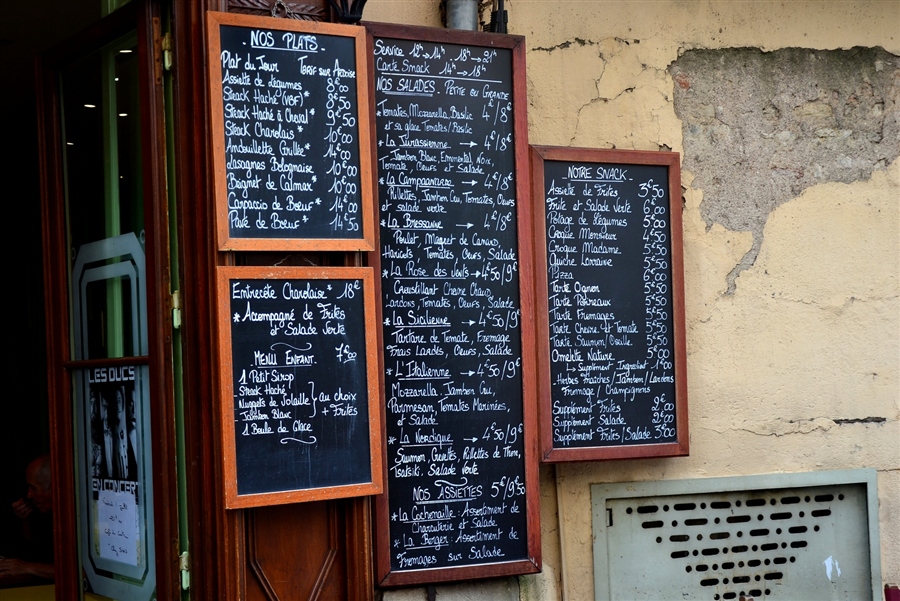 NOS PLATS
Plat du Jour Tarif sur Ardoise
Assiette de Légumes 8€00
Steack Haché (VBF)* 8€50
Steack Haché à Cheval* 9€50
Steack Charolais* 10€00
Andouillette Grillée* 14€00
Lasagnes Bolognaise 10€00
Beignet de Calmar* 10€00
Carpaccio de Boeuf* 14€00
Pavé de Boeuf* 14€50
Entrecôte Charolaise* 18€
*Accompagné de Frites
et Salade Verte
MENU ENFANT. 7€00
1 Petit Sirop
Steack Haché
Nuggets de Volaille au choix
Jambon Blanc + Frites
1 Boule de Glace
Service 12h → 14h . 18h → 21h
Carte Smack 14h → 18h
NOS SALADES. PETITE OU GRANDE
*Tomates, Mozzarella, Basilic 4€/8€
et sa glace Tomates/Basilic
*La Jurassienne → 4€/8€
Jambon Blanc, Emmental, Noix,
Tomate, Oeufs et Salade
*La Campagnarde → 4€/8€
Rillettes, Jambon Cru, Tomates, Oeufs
et salade verte
*La Bressanne → 4€/8€
Poulet, Magret de Canard,
Haricots, Tomates, Oeufs, Salade
*La Rose des vents → 4€50/9€
Croustillant Chèvre Chaud,
Lardons, Tomates, Oeufs, Salade
*La Sicilienne → 4€50/9€
Tartare de Tomate, Fromage
Frais Lardés, Oeufs, Salade
*L'Italienne → 4€50/9€
Mozzarella, Jambon Cru,
Parmesan, Tomates Marinées,
et Salade
*La Nordique → 4€50/9€
Saumon, Crevettes, Rillettes de Thon,
Tsatsiki, Salade Verte
NOS ASSIETTES 5€/9€50
*La Cochonaille: Assortiment de
Charcuterie et Salade
*La Berger: Assortiment de
Fromages sur Salade
NOTRE SNACK
Assiette de Frites 3€50
Frite et Salade Verte 6€00
Potage de Légumes 5€00
Croque Monsieur 4€50
Croque Madame 5€50
Quiche Lorraine 5€50
Pizza 6€00
Tarte Oignon 5€50
Tarte Poireaux 5€50
Tarte Fromages 5€50
Tarte Chèvre et Tomate 5€50
Tarte Saumon/Oseille 5€50
Omelette Nature 5€00
Supplément Ingrédient 1€00
-Herbes Fraîches/Jambon/Lardons
Fromage/Champignons
Supplément Frites 2€00
Supplément Salade 2€00
Supplément Frites/Salade 3€00
LES DUCS
EN CONCERT